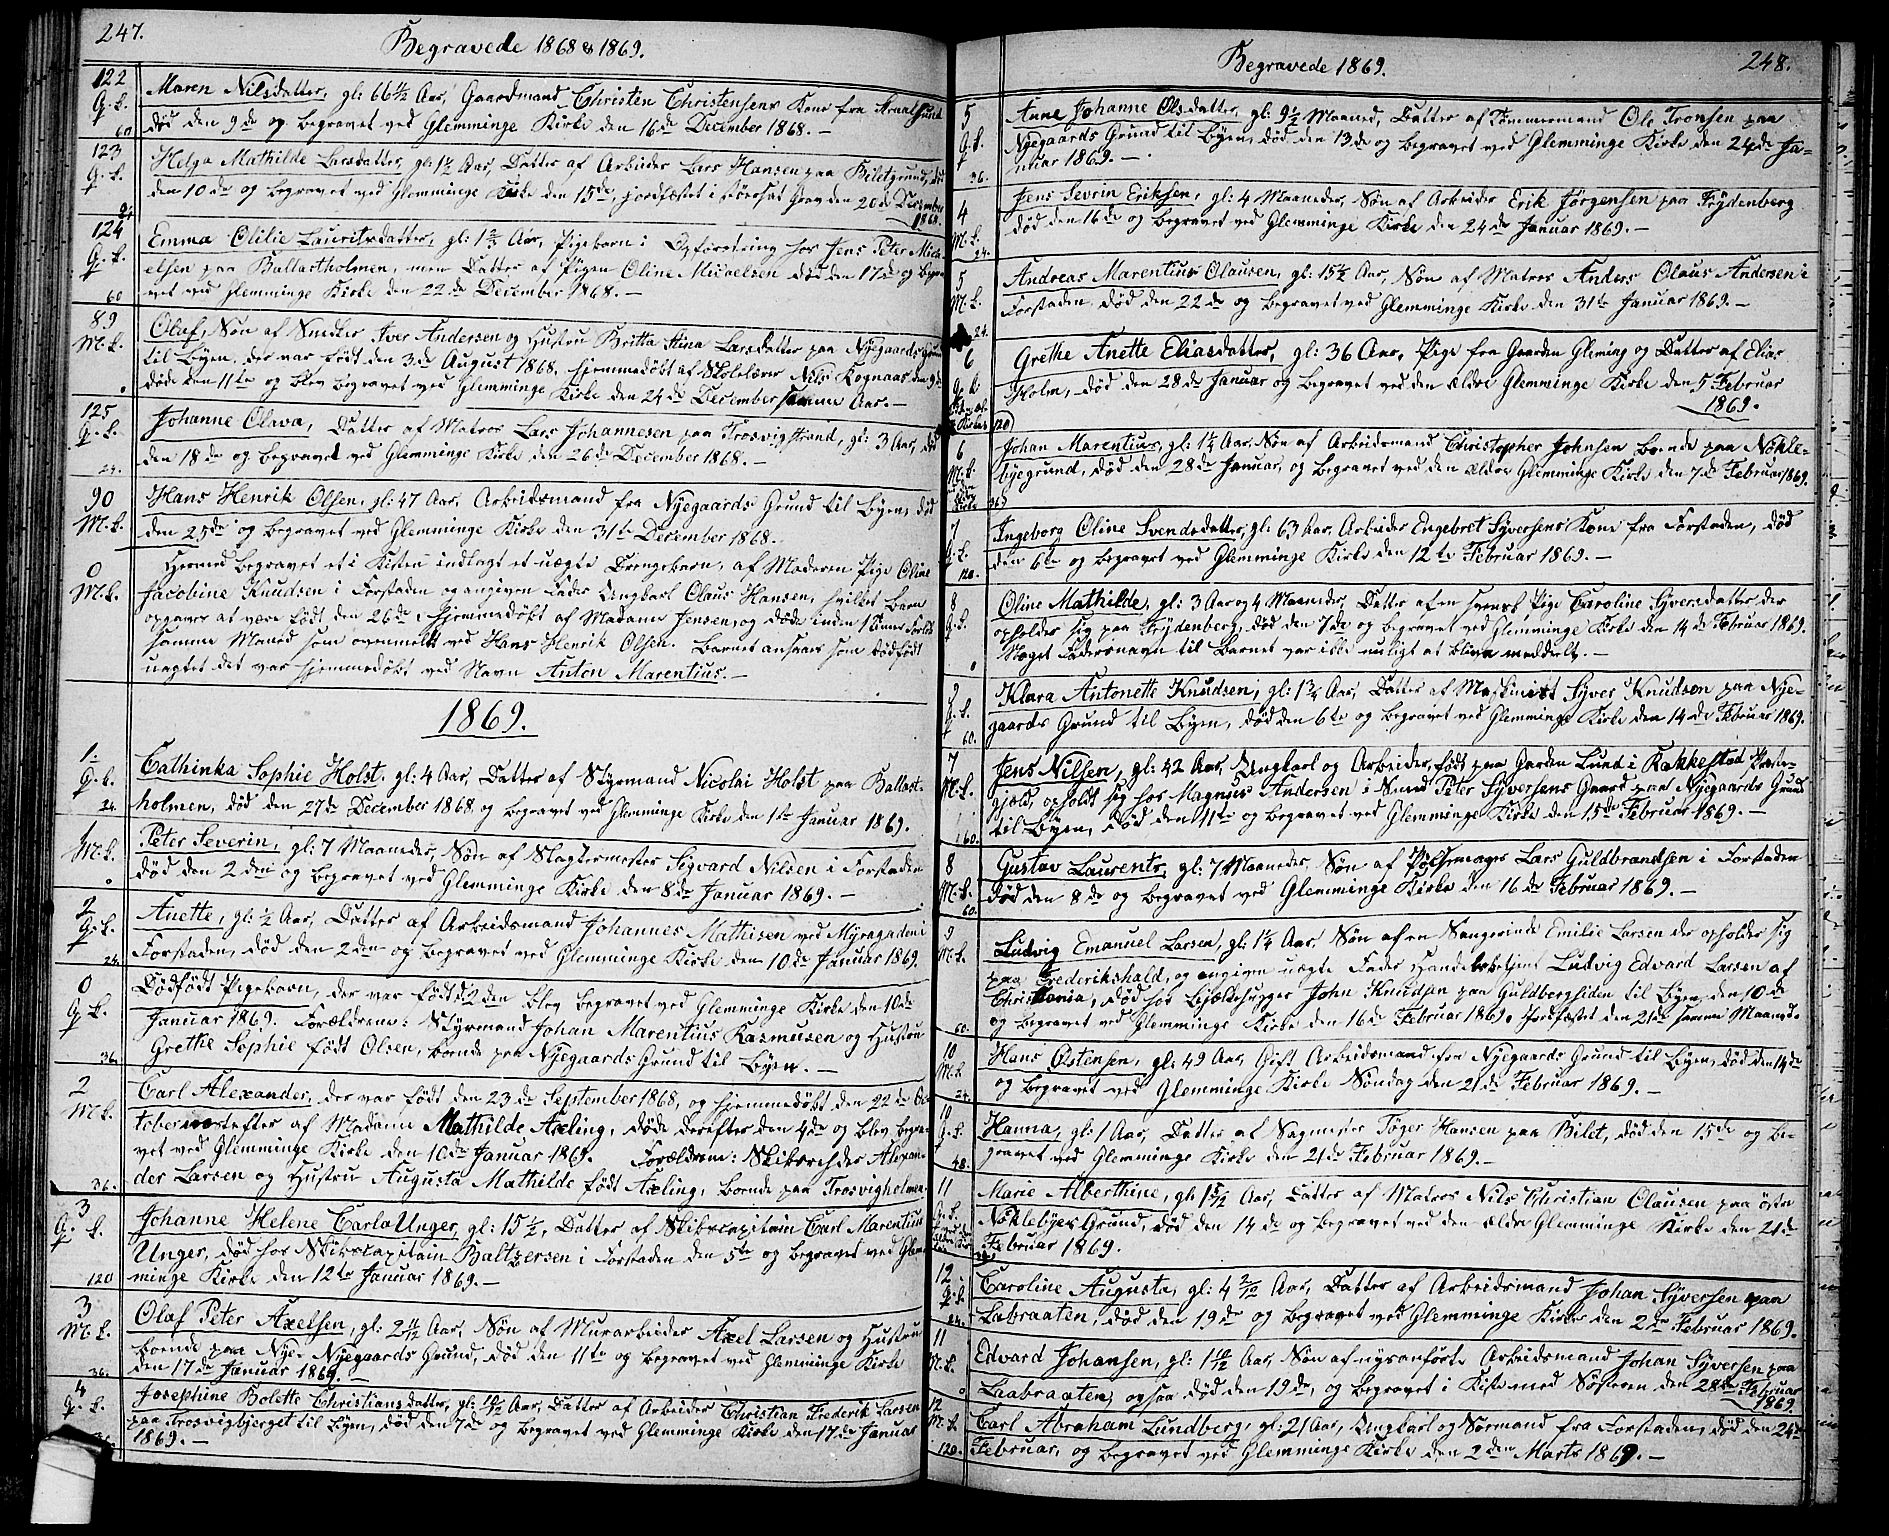 247.
Begravede 1868 & 1869.
122
Q. L.
60
Maren Nilsdatter, gl: 66 1/2 Aar, Gaardmand Christen Christensens Kone fra
død den 9de og begravet ved Glemminge Kirke den 16de December 1868. —
123
Q. L.
Helga Mathilde Larsdatter, gl: 1 1/2 Aar, Datter af Arbeider Lars Hansen paa Biletgrund, død
den 10de og begravet ved Glemminge Kirke den 15de, jordfæstet i størset Grav den 20de December
1868.
124
Q. L.
60
Emma Otilie Lauritsdatter, gl: Aar, Pigebarn i Opfostring hos Jens Peter Mich-
elsen paa Ballastholmen, men Datter af Pigen Oline Micaelsen død den 17de og begra-
vet ved Glemminge Kirke den 22de December 1868. —
89
M. L.
0
Oluf, Søn af Snedker Iver Andersen og Hustru Britta Stina Larsdatter paa Nyegaards Grund
til Byen, der var født den 3de August 1868, hjemmedøbt af Skolelærer Nils Kognaas den 9de
døde den 11te og blev begravet ved Glemminge Kirke den 24de December samme Aar. —
125
Q. L.
24.
Johanne Olava, Datter af Matros Lars Johannesen paa Trosvigstrand, gl: 3 Aar, død
den 18de og begravet ved Glemminge Kirke den 26de December 1868. —
90
M. L.
Hans Henrik Olsen, gl: 47 Aar, Arbeidsmand fra Nyegaards Grund til Byen, død
den 25de og begravet ved Glemminge Kirke den 31te December 1868.
0
M. L.
Hermed begravet et i Kisten indlagt et uægte Drengebarn, af Moderen Pige Oline
Jacobine Knudsen i Forstaden og angiven Fader Ungkarl Olaus Hansen, hvilket Barn
opgaves at være født den 26de, hjemmedøbt af Madame Jensen, og døde inden 1 Times Forløb
samme Maaned som ovenmeldt ved Hans Henrik Olsen. Barnet ansaaes som dødfødt
uagtet det var hjemmedøbt ved Navn Anton Marentius. —
1869.
1
Q. L.
24.
Cathinka Sophie Holst. gl: 4 Aar, Datter af Styrmand Nicolai Holst paa Ballast-
holmen, død den 27de December 1868 og begravet ved Glemminge Kirke den 1te Januar 1869.
1
M. L.
0
Peter Severin, gl: 7 Maaneder, Søn af Slagtermester Sigvard Nilsen i Forstaden
død den 2den og begravet ved Glemminge Kirke den 8de Januar 1869. —
2
Q. L.
24.
Anette, gl: 1/2 Aar, Datter af Arbeidsmand Johannes Mathisen ved Myragaden i
Forstaden, død den 2den og begravet ved Glemminge Kirke den 10de Januar 1869.
0
Q. L.
36.
Dødfødt Pigebarn, der var født d. 2den blev begravet ved Glemminge Kirke den 10de
Januar 1869. Forældrene: Styrmand Johan Marentius Rasmusen og Hustru
Grethe Sophie født Olsen, boende paa Nyegaards Grund til Byen. —
2
M. L.
36.
Carl Alexander, der var født den 23de September 1868, og hjemmedøbt den 22de Oc-
tober næstefter af Madame Mathilde Axeling, døde derefter den 4de og blev begra-
vet ved Glemminge Kirke den 10de Januar 1869. Forældrene: Skibsrehder Alexan-
der Larsen og Hustru Augusta Mathilde født Axeling, boende paa Trosvigholmen.
3
Q. L.
120
Johanne Helene Carla Unger, gl: 15 1/2, Datter af Skibscapitain Carl Marentius
Unger, død hos Skibscapitain Baltzersen i Forstaden den 5te og begravet ved Glem-
minge Kirke den 12te Januar 1869. —
3
M. L.
36.
Olaf Peter Axelsen, gl: 2 11/12 Aar, Søn af Murarbeider Axel Larsen og Hustru
boende paa Nye- Nyegaards Grund, død den 11te og begravet ved Glemminge Kirke
den 17de Januar 1869.
4
Q. L.
36.
Josephine Bolette Christiansdatter, gl: 10/12 Aar, Datter af Arbeider Christian Frederik Larsen
paa Trosvigbjerget til Byen, død den 7de og begravet ved Glemminge Kirke den 17de Januar
1869. —
Begravede 1869.
248.
5
Q. L.
36.
Anne Johanne Olsdatter, gl: 9 1/2 Maaned, Datter af Tømmermand Ole Tronsen paa
Nyegaards Grund til Byen, død den 13de og begravet ved Glemminge Kirke den 24de Ja-
nuar 1869. —
4
M. L.
24.
Jens Sevrin Eriksen, gl: 4 Maaneder, Søn af Arbeider Erik Jørgensen paa Frydenberg
død den 16de og begravet ved Glemminge Kirke den 24de Januar 1869. —
5
M. L.
24.
Andreas Marentius Olausen, gl: 15 1/2 Aar, Søn af Matros Anders Olaus Andersen i
Forstaden, død den 22de og begravet ved Glemminge Kirke den 31te Januar 1869. —
6
Q. L.
120
Grethe Anette Eliasdatter, gl: 36 Aar, Pige fra Gaarden Gleming og Datter af Elias
Holm, død den 28de Januar og begravet ved den ældre Glemminge Kirke den 5 Februar
1869.
6
M. L.
36.
Johan Marentius, gl: Aar, Søn af Arbeidsmand Christopher Johnsen boende paa Nøkle-
byegrund, død den 28de Januar, og begravet ved den ældre Glemminge Kirke den 7de Februar 1869.
7
Q. L.
120.
Ingeborg Oline Svendsdatter, gl: 63 Aar, Arbeider Engebret Syversens Kone fra Forstaden, død
den 6te og begravet ved Glemminge Kirke den 12te Februar 1869. —
8
Q. L.
0
Oline Mathilde, gl: 3 Aar og 4 Maaneder, Datter af en svensk Pige Caroline Syversdatter der
opholder sig paa Frydenberg, død den 7de og begravet ved Glemminge Kirke den 14de Februar 1869.
Noget Fadersnavn til Barnet var ikke muligt at blive meddelt. —
9
Q. L.
60.
Klara Antonette Knudsen, gl: 1 3/4 Aar, Datter af Maskinist Syver Knudsen paa Nye-
gaards Grund til Byen, død den 6te og begravet ved Glemminge Kirke den 14de Februar 1869.
7
M. L.
60.
Jens Nilsen, gl: 42 Aar, Ungkarl og Arbeider, født paa Garden Lund i Rakkestad Præste-
gjeld, opholdt sig hos Magnus Andersen i Smed Peter Syversens Gaard paa Nyegaards Grund
til Byen, død den 11te og begravet ved Glemminge Kirke den 15de Februar 1869. —
8
M. L.
60.
Gustav Laurents, gl: 7 Maaneder, Søn af Pølsemager Lars Guldbrandsen i Forstaden
død den 8de og begravet ved Glemminge Kirke den 16de Februar 1869. —
9
M. L.
60.
Ludvig Emanuel Larsen, gl: 1 1/4 Aar, Søn af en Sangerinde Emilie Larsen der opholder sig
paa Frederikshald, og angiven uægte Fader Handelsbetjent Ludvig Edvard Larsen af
Christiania, død hos Bjælkehugger John Knudsen paa Guldbergsiden til Byen, den 10de
og begravet ved Glemminge Kirke den 16de Februar 1869. Jordfæstet den 21de samme Maaned.
10
M. L.
24.
Hans Østensen, gl: 49 Aar, Gift Arbeidsmand fra Nyegaards Grund til Byen, død den 14de
og begravet ved Glemminge Kirke Søndag den 21de Februar 1869. —
10
Q. L.
48.
Hanna, gl: 1 Aar, Datter af Sagmester Tøger Hansen paa Bilet, død den 15de og be-
gravet ved Glemminge Kirke den 21de Februar 1869. —
11
Q. L.
Marie Alberthine, gl: 1 5/12 Aar, Datter af Matros Nils Christian Clausen paa østre
Nøklebyes Grund, død den 14de og begravet ved den ældre Glemminge Kirke den 21de
Februar 1869.
12
Q. L.
24.
Caroline Augusta, gl: 4 2/12 Aar, Datter af Arbeidsmand Johan Syversen paa
Labraaten, død den 19de og begravet ved Glemminge Kirke den Februar 1869.
11
M. L.
0
Edvard Johansen, gl: 1 10/12 Aar, Søn af nysanførte Arbeidsmand Johan Syversen paa
Laabraaten, ogsaa død den 19de, og begravet i Kiste med Søsteren den 28de Februar
1869.
12
M. L.
120.
Carl Abraham Lundberg, gl: 21 Aar, Ungkarl og Sømand fra Forstaden, død den 24de
Februar, og begravet ved Glemminge Kirke den 2den Marts 1869. —